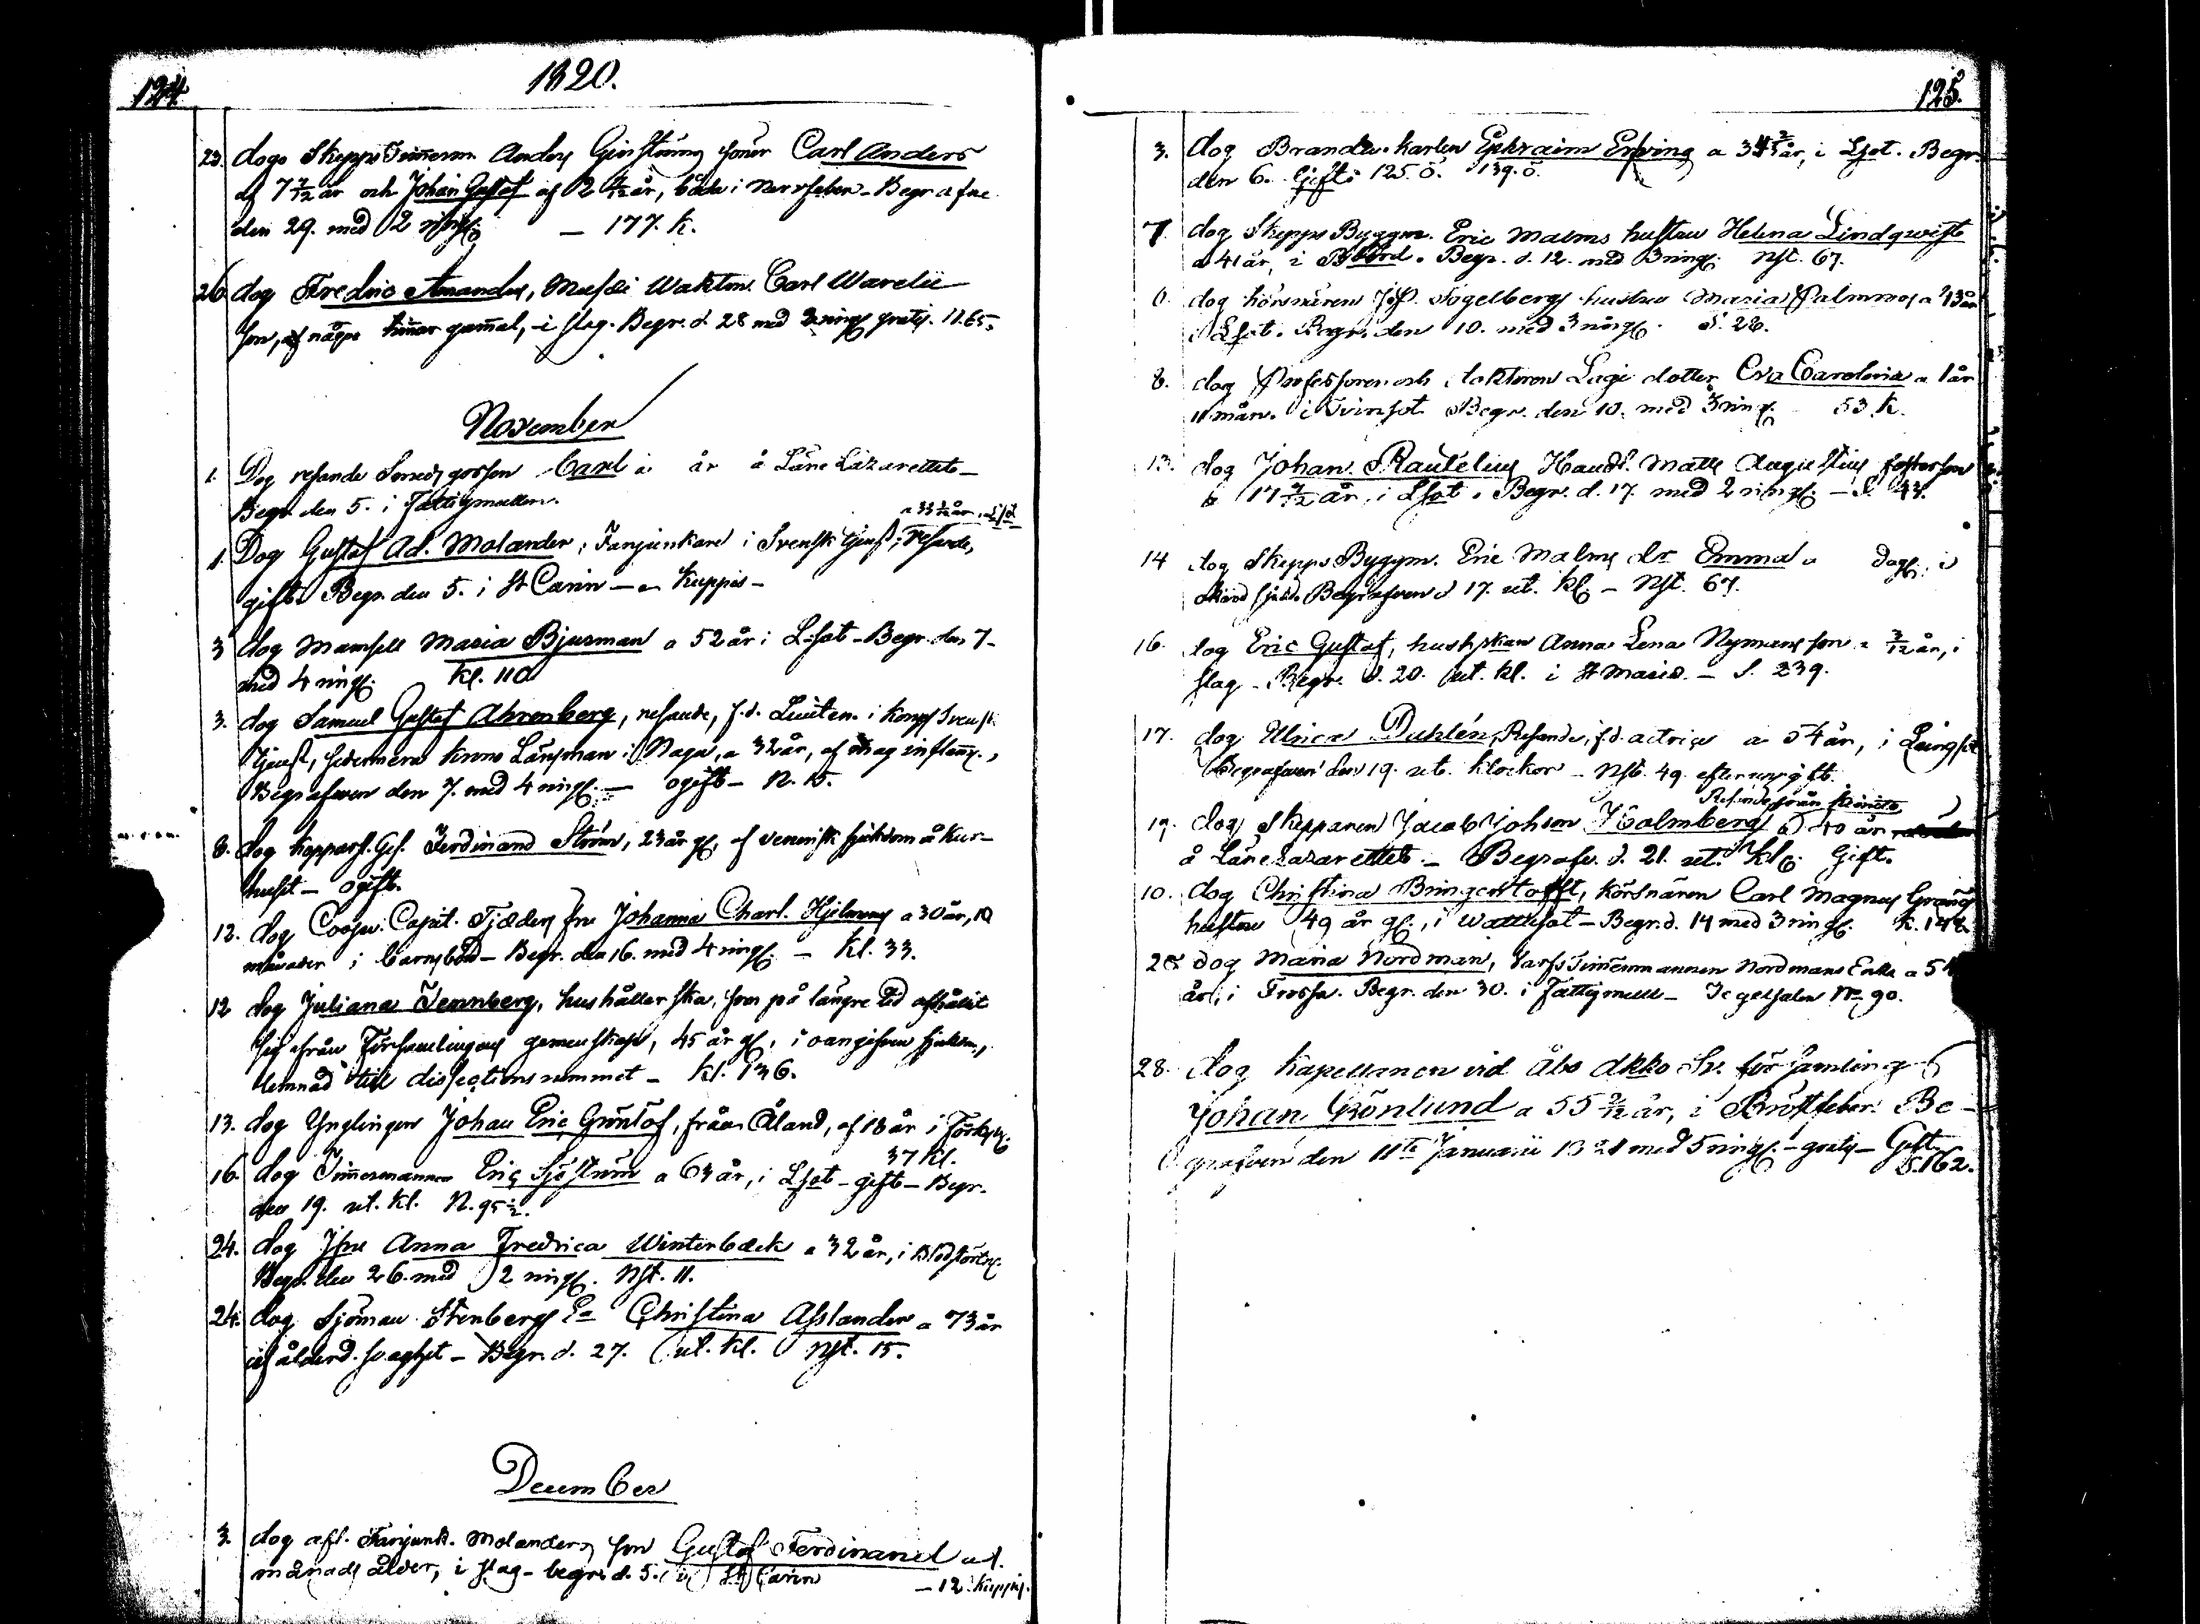 124.
1820.
23. dogo Skepps Timerm. Anders Ginström söner Carl Anders
af 7 7/12 år och Johan Gustaf af 2 år, båda i Nervfeber - Begrafne
den 29. med 2 ringg. — 177. K.
26. dog Fredric Amandus, Musei Waktm. Carl Warelii
son, af några timar gamal, i slag. Begr. d. 28 med 3 ringg gratis. 11.65.
November
1. Dog resande Smeds gossen Carl a år å Läne Lazarettet -
Begr. den 5. i Fattigmullen.
a 33 år, i Lsot
1. Dog Gustaf Ad. Molander, Fanjunkare i Svensk tjenst, resande,
gift. Begr. den 5. i St Carin — Kuppis -
3 dog Mamsell Maria Bjurman a 52 år i Lsot - Begr. den 7-
med 4 ringg. Kl. 110
3. dog Samuel Gustaf Ahrenberg, resande, f.d. Lieuten. i Kongl Svensk
tjenst, sedermera krono Länsman i Nagu, a 32 år, af mag inflam.,
Begrafven den 7. med 4 ringg. — ogift - N. 15.
8. dog kopparsl. Ges. Ferdinand Ström, 23 år gl, af venerisk sjukdom å Kur-
huset - ogift.
12. dog Coopv. Capit. Tjæders fru Johanna Charl. Hjelmerus a 30 år, 10
månader i barnsbörd - Begr. den 16. med 4 ringg. - Kl. 33.
12 dog Juliana Jernberg, hushållerska, som på längre tid afhållit
sig ifrån Församlingens gemenskap, 45 år gl., i oangifven sjukdom,
lemnad till dissections rummet - Kl. 136.
13. dog Ynglingen Johan Eric Gröntof, från Åland, af 18 år i
37 Kl.
16. dog Timermannen Eric Sjöström a 63 år, i Lsot - gift - Begr.
den 19. ut. Kl. N. 95 1/2.
24. dog Jfru Anna Fredrica Winterbæck a 32 år, i Blodstörtn.
Begr. den 26. med 2 ringg. Nst. 11.
24. dog Sjöman Stenbergs Ea Christina Asslander a 73 år
af ålderd. svaghet - Begr. d. 27. ut. Kl. Nst. 15.
December
3. dog afl. Fanjunk. Molanders son Gustaf Ferdinand a 1.
månads ålder, i slag - begr. d. 5. i St Carin — 12 Kuppis.
125.
3. dog Brandvakts karlen Ephraim Erving a år, i Lsot. Begr.
den 6. Gift. 125 Ö. 139. Ö.
7. dog Skepps Byggm. Eric Malms hustru Helena Lindqwist
a 41 år, i Bbörd. Begr. d. 12. med 3 ringg. Nst. 67.
6. dog körsnären Jos. Fogelbergs hustru Maria Palmros a 73 år
i Lsot. Begr. den 10. med 3 ringg. S. 28.
8. dog Professoren och doktoren Lagi dotter Eva Carolina a 1 år
11 mån. i Tvinsot. Begr. den 10. med 3 ringg. 53 K.
13. dog Johan Rautelius Handl. Matts Augustius fosterson
a 17 år, i Lsot. Begr. d. 17. med 2 ringg. - S. 43.
14 dog Skepps Byggm. Eric Malms dr Emma a dag. i
okänd sjukd. Begrafven d 17. ut. Kl. - Nst. 67.
16. dog Eric Gustaf, hushskan Anna Lena Nymans son a 3/12 år, i
slag - Begr. d. 20. ut. kl. i St Marie. - S. 239.
17. dog Ulrica Duhlén, Resande, f.d. actrice a 54 år, i Lungsot
Begrafven den 19. ut. klockor - Nst. 49.
Resande från
19. dog Skepparen Jacob Johson Holmberg a 40 år
å Läne Lazarettet - Begrafv. d. 21. ut. Kl. Gift.
10. dog Christina Bringentofft, körsnären Carl Magnus Granös
hustru 49 år gl., i Wattusot - Begr. d. 14 med 3 ringg. K. 148.
28 dog Maria Nordman, Varfs Timermannen Nordmans Enka a 5
år, i Frossa. Begr. den 30. i Fattigmull - Tegelsalen No 90.
28. dog Kapellanen vid Åbo Akko Sv. församling
Johan Grönlund a 55 år, i Rötfeber. Be-
grafven den 11te Januarii 1821 med 5 ringg. - gratis - Gift
S. 162.